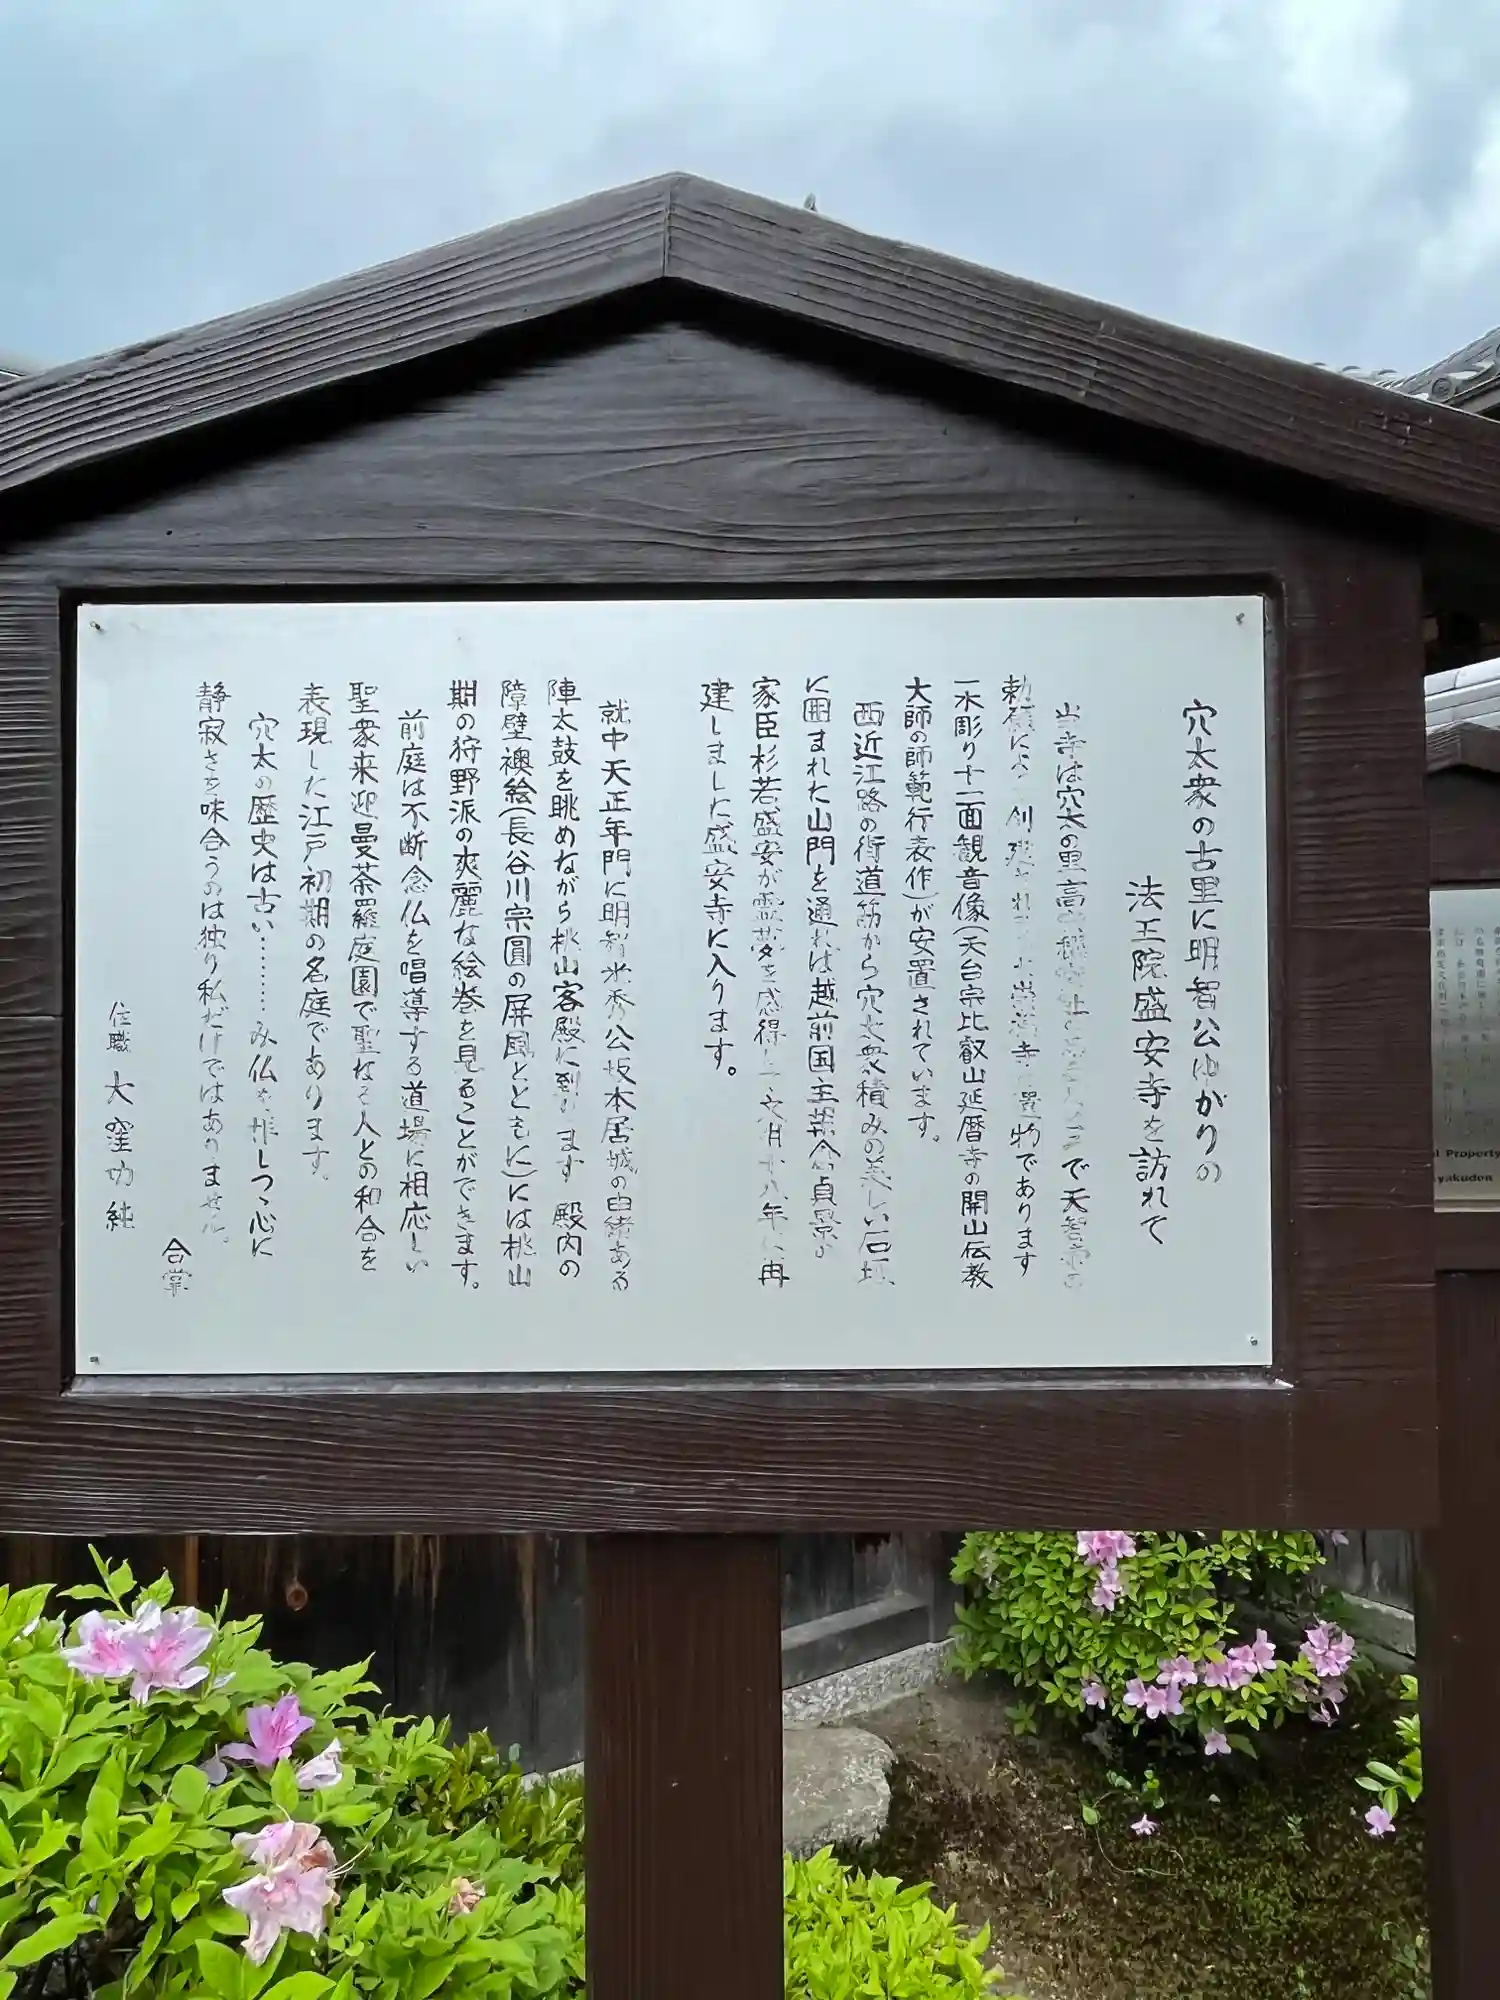 穴太衆の古里に明智公ゆかりの
法王院盛安寺を訪れて
当寺は穴太の里高穴穂宮址で天智帝の
勅願に創建され崇福寺遺物であります
一木彫り十一面観音像(天台宗比叡山延暦寺の開山伝教
大師の師範行表作)が安置されています。
西近江路の街道筋から穴太衆積みの美しい石垣
に囲まれた山門を通れば越前国主朝倉貞景が
家臣杉若盛安が霊夢を感得し文明十八年に再
建しました盛安寺に入ります。
就中天正年門に明智光秀公坂本居城の由緒ある
陣太鼓を眺めながら桃山客殿に到ります 殿内の
障壁襖絵(長谷川宗圓の屏風とともに)には桃山
期の狩野派の爽麗な絵巻を見ることができます。
前庭は不断念仏を唱導する道場に相応しい
聖衆来迎曼荼羅庭園で聖なる人との和合を
表現した江戸初期の名庭であります。
穴太の歴史は古い………み仏を拝しつゝ心に
静寂さを味合うのは独り私だけではありません。
合掌
住職 大窪功純
l Property
yakuden